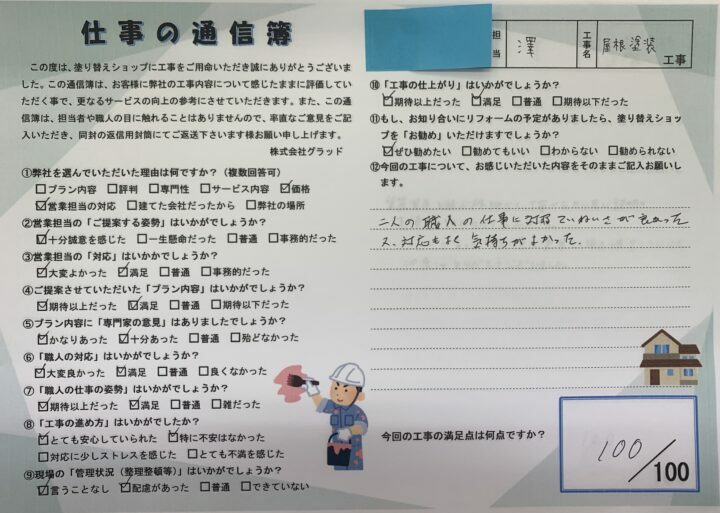 仕事の通信簿
この度は、塗り替えショップに工事をご用命いただき誠にありがとうございま
した。この通信簿は、お客様に弊社の工事内容について感じたままに評価してい
ただく事で、更なるサービスの向上の参考にさせていただきます。また、この通
信簿は、担当者や職人の目に触れることはありませんので、率直なご意見をご記
入いただき、同封の返信用封筒にてご返送下さいます様お願い申し上げます。
株式会社グラッド
①弊社を選んでいただいた理由は何ですか？（複数回答可）
□プラン内容 □評判 □専門性 □サービス内容 ☑価格
☑営業担当の対応 □建てた会社だったから □弊社の場所
②営業担当の「ご提案する姿勢」はいかがでしょうか？
☑十分誠意を感じた □一生懸命だった □普通 □事務的だった
③営業担当の「対応」はいかかでしょうか？
☑大変よかった ☑満足 □普通 □事務的だった
④ご提案させていただいた「プラン内容」はいかがでしょうか？
☑期待以上だった ☑満足 □普通 □期待以下だった
⑤プラン内容に「専門家の意見」はありましたでしょうか？
☑かなりあった ☑十分あった □普通 □殆どなかった
⑥「職人の対応」はいかがでしょうか？
☑大変良かった ☑満足 □普通 □良くなかった
⑦「職人の仕事の姿勢」はいかがでしょうか？
☑期待以上だった ☑満足 □普通 □雑だった
⑧「工事の進め方」はいかがでしたか？
☑とても安心していられた ☑特に不安はなかった
□対応に少しストレスを感じた □とても不満を感じた
⑨現場の「管理状況（整理整頓等）」はいかがでしょうか？
☑言うことなし ☑配慮があった □普通 □できていない
担当 澤 工事名 屋根塗装 工事
⑩「工事の仕上がり」はいかがでしょうか？
☑期待以上だった ☑満足 □普通 □期待以下だった
⑪もし、お知り合いにリフォームの予定がありましたら、塗り替えショッ
プを「お勧め」いただけますでしょうか？
☑ぜひ勧めたい □勧めてもいい □わからない □勧められない
⑫今回の工事について、お感じいただいた内容をそのままご記入お願いし
ます。
二人の職人の仕事に対するていねいさが良かった
又、対応もよく気持ちがよかった.
今回の工事の満足点は何点ですか？
100/100